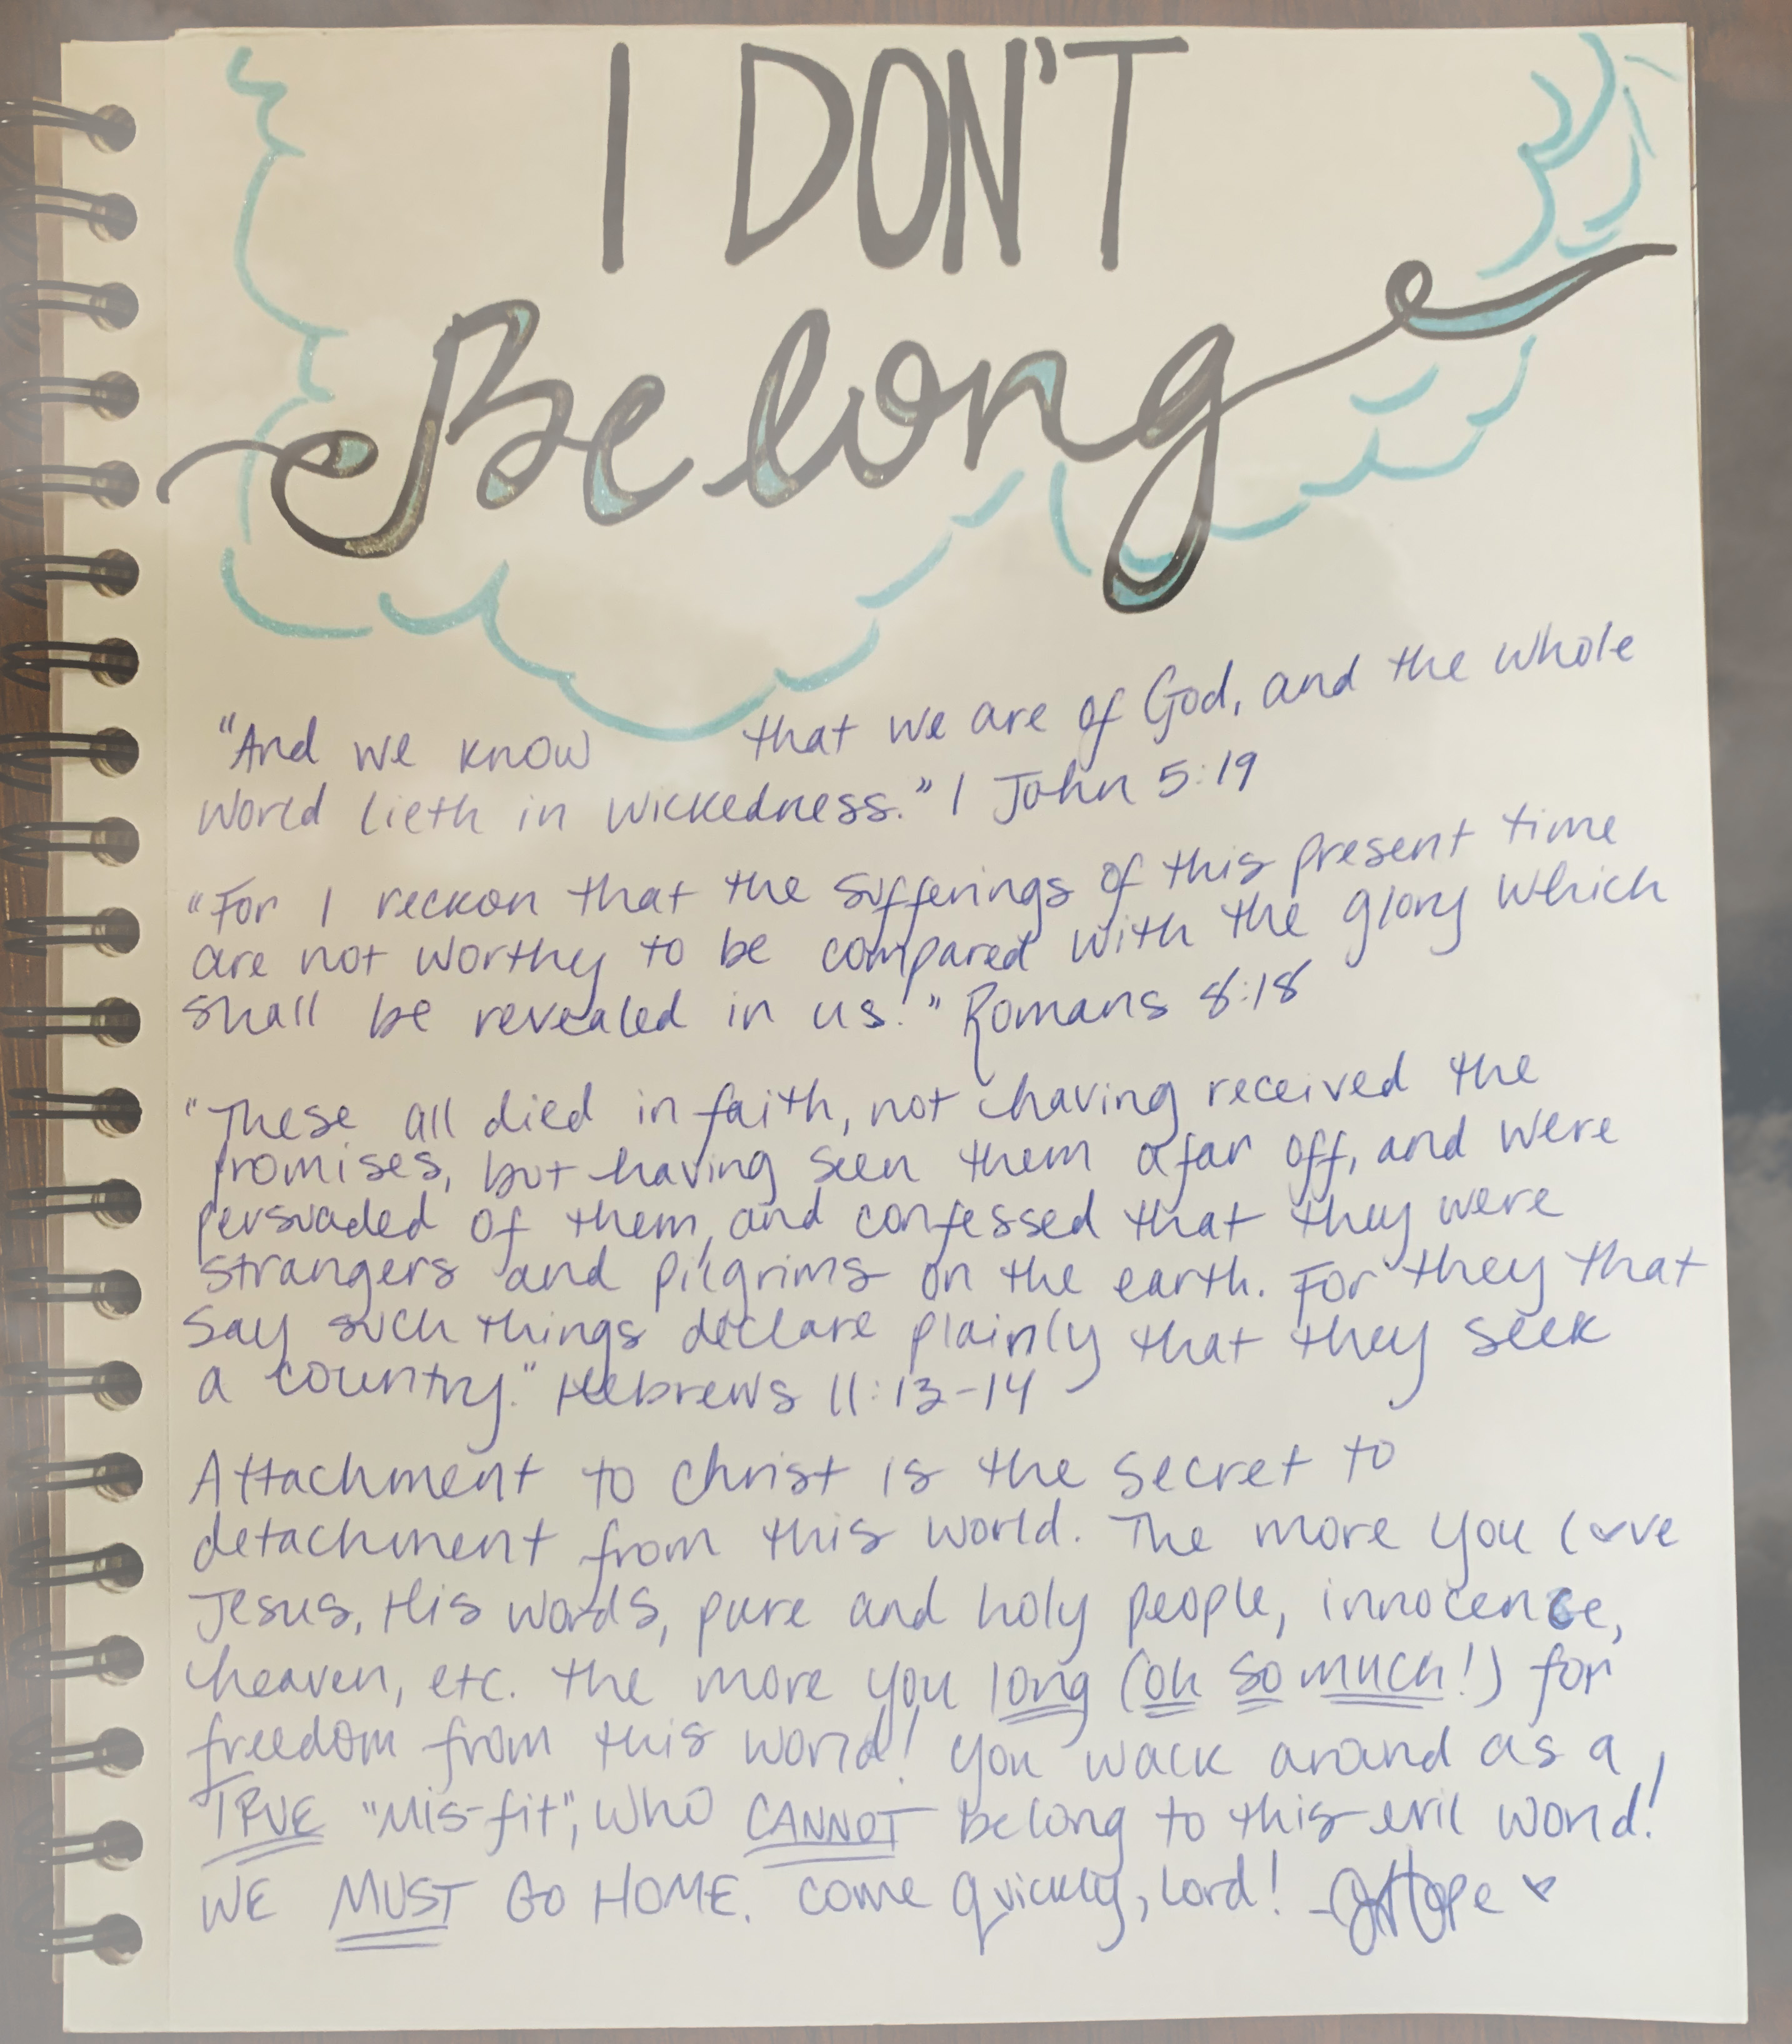 I DON'T
Belong
"And we know that we are of God, and the whole
world lieth in wickedness." 1 John 5:19
"For I reckon that the sufferings of this present time
are not worthy to be compared with the glory which
shall be revealed in us." Romans 8:18
"These all died in faith, not having received the
promises, but having seen them afar off, and were
persuaded of them, and confessed that they were
strangers and pilgrims on the earth. For they that
say such things declare plainly that they seek
a country." Hebrews 11:13-14
Attachment to Christ is the secret to
detachment from this world. The more you love
Jesus, His words, pure and holy people, innocence,
heaven, etc. the more you long (oh so much!) for
freedom from this world! You walk around as a
TRUE "Mis-fit", who CANNOT belong to this evil world!
WE MUST GO HOME. Come quickly, Lord! -JHope